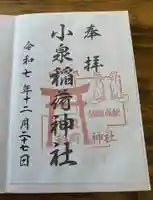 奉拝
小泉稲荷神社
令和七年十二月二十七日